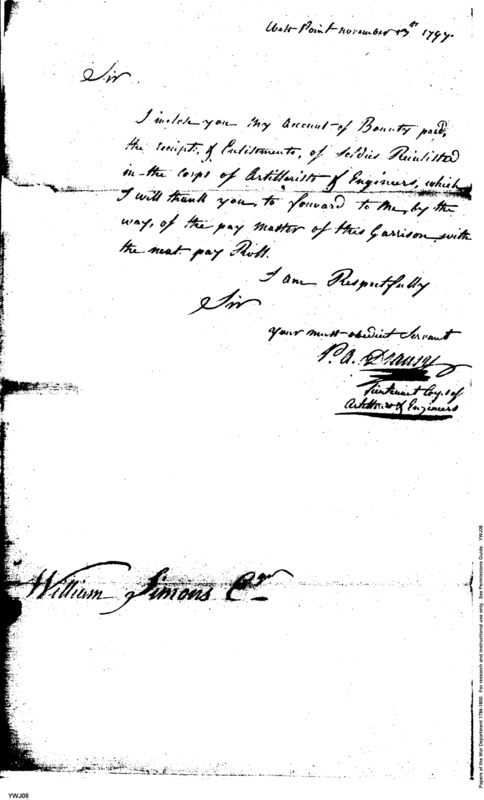 West Point november 1797.
Sir
I inclose you My Account of Bounty paid,
the receipts, of Enlistments, of Soldies Reinlisted
in the corps of Artillerists & Engineers, which
I will thank you to forward to Me, by the
way, of the pay master of this Garrison with
the next pay Roll.
I am Respectfully
Sir
Your most obedient Servant
P. A. Dransy
Lieutenant Corps of
Artillerists & Engineers
William Simons Eqr
Papers of the War Department 1784-1800. For research and instructional use only. See Permissions Guide. YWJ08
YWJ08